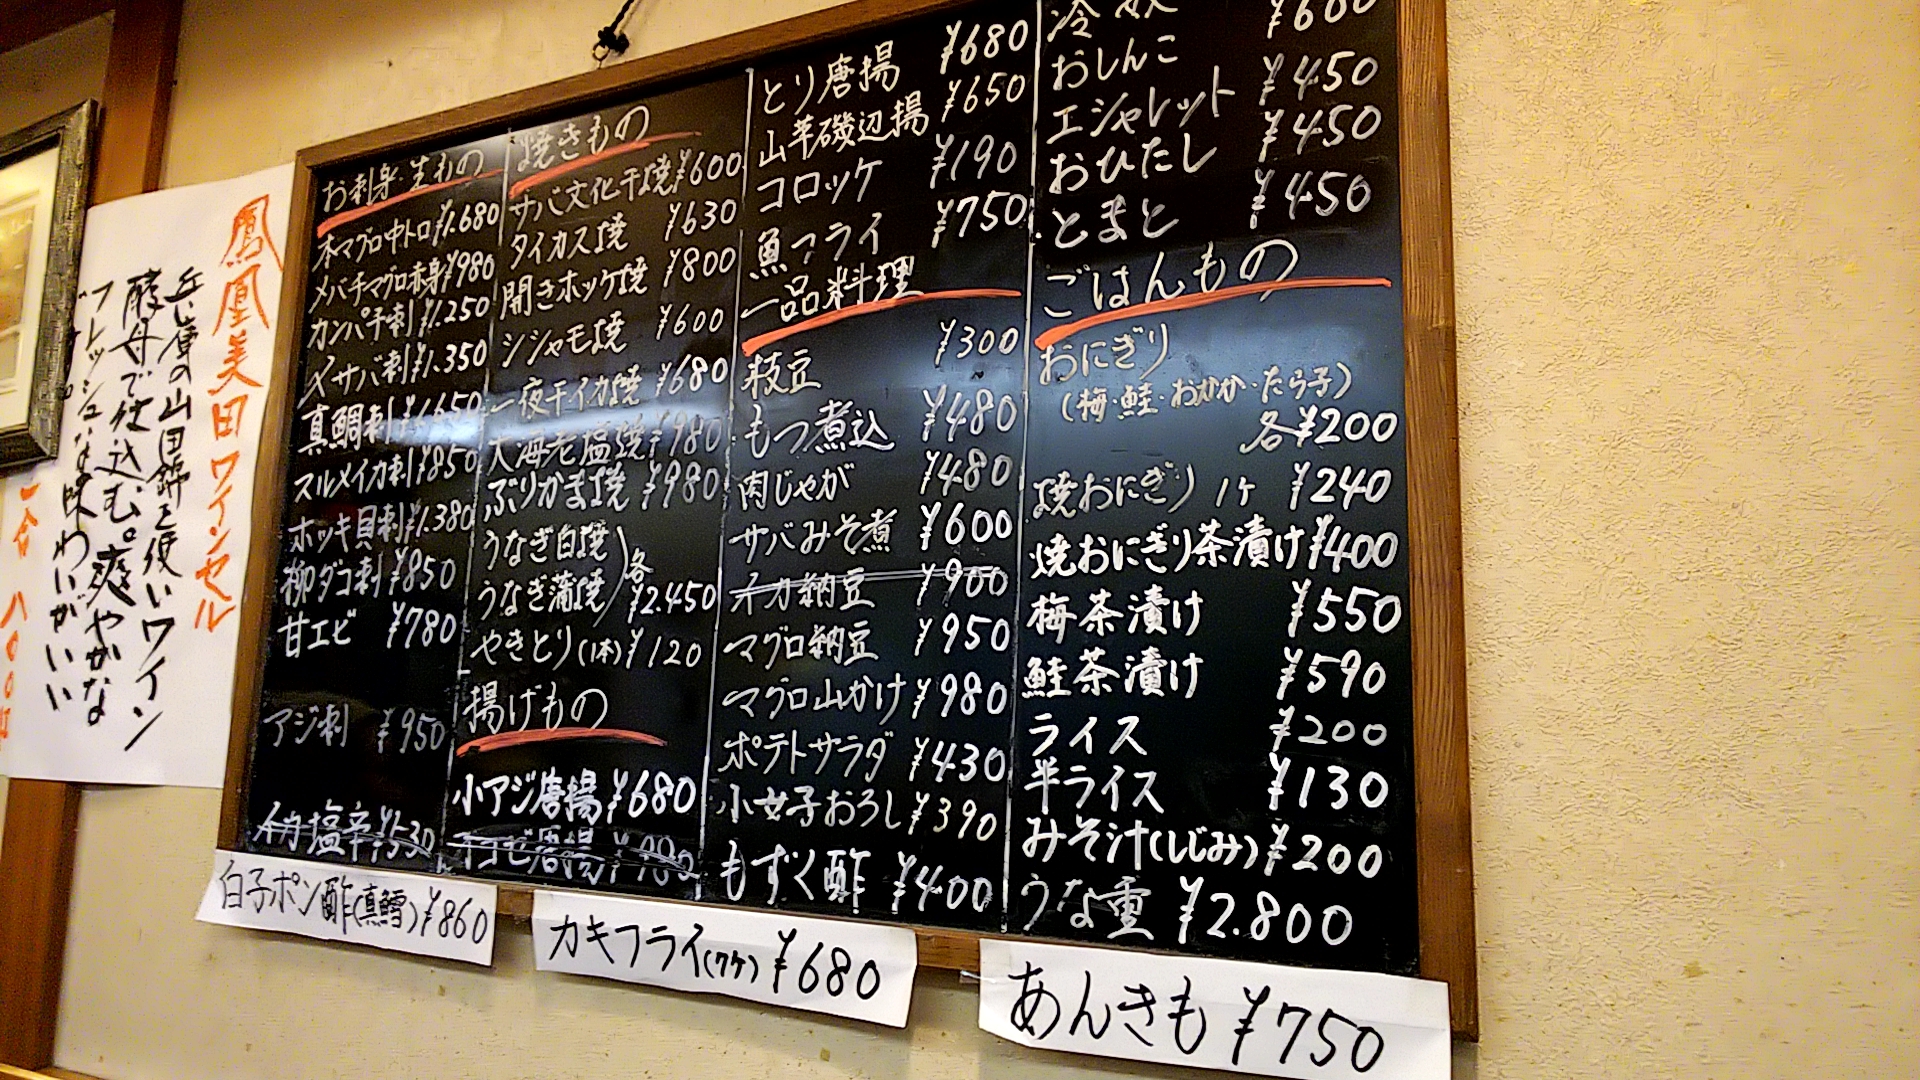 鳳凰美田ワインセル
兵庫の山田錦を使いワイン
酵母で仕込む。爽やかな
フレッシュな味わいがいい
お刺身・生もの
本マグロ中トロ ¥1.680
メバチマグロ赤身 ¥980
カンパチ刺 ¥1.250
〆サバ刺 ¥1.350
真鯛刺 ¥1.650
スルメイカ刺 ¥850
ホッキ貝刺 ¥1.380
柳ダコ刺 ¥850
甘エビ ¥780
アジ刺 ¥950
イカ塩辛 ¥530
焼きもの
サバ文化干焼 ¥600
タイカス焼 ¥630
開きホッケ焼 ¥800
シシャモ焼 ¥600
一夜干イカ焼 ¥680
大海老塩焼 ¥980
ぶりかま焼 ¥980
うなぎ白焼
うなぎ蒲焼 各 ¥2.450
やきとり(1本) ¥120
揚げもの
小アジ唐揚 ¥680
唐揚
とり唐揚 ¥680
山芋磯辺揚 ¥650
コロッケ ¥190
魚フライ ¥750
一品料理
枝豆 ¥300
もつ煮込 ¥480
肉じゃが ¥480
サバみそ煮 ¥600
イカ納豆 ¥900
マグロ納豆 ¥950
マグロ山かけ ¥980
ポテトサラダ ¥430
小女子おろし ¥390
もずく酢 ¥400
冷奴
おしんこ ¥450
エシャレット ¥450
おひたし ¥450
とまと
ごはんもの
おにぎり
(梅・鮭・おかか・たら子)
各 ¥200
焼おにぎり 1ケ ¥240
焼おにぎり茶漬け ¥400
梅茶漬け ¥550
鮭茶漬け ¥590
ライス ¥200
半ライス ¥130
みそ汁(しじみ) ¥200
うな重 ¥2.800
白子ポン酢(真鱈) ¥860
カキフライ(7ケ) ¥680
あんきも ¥750